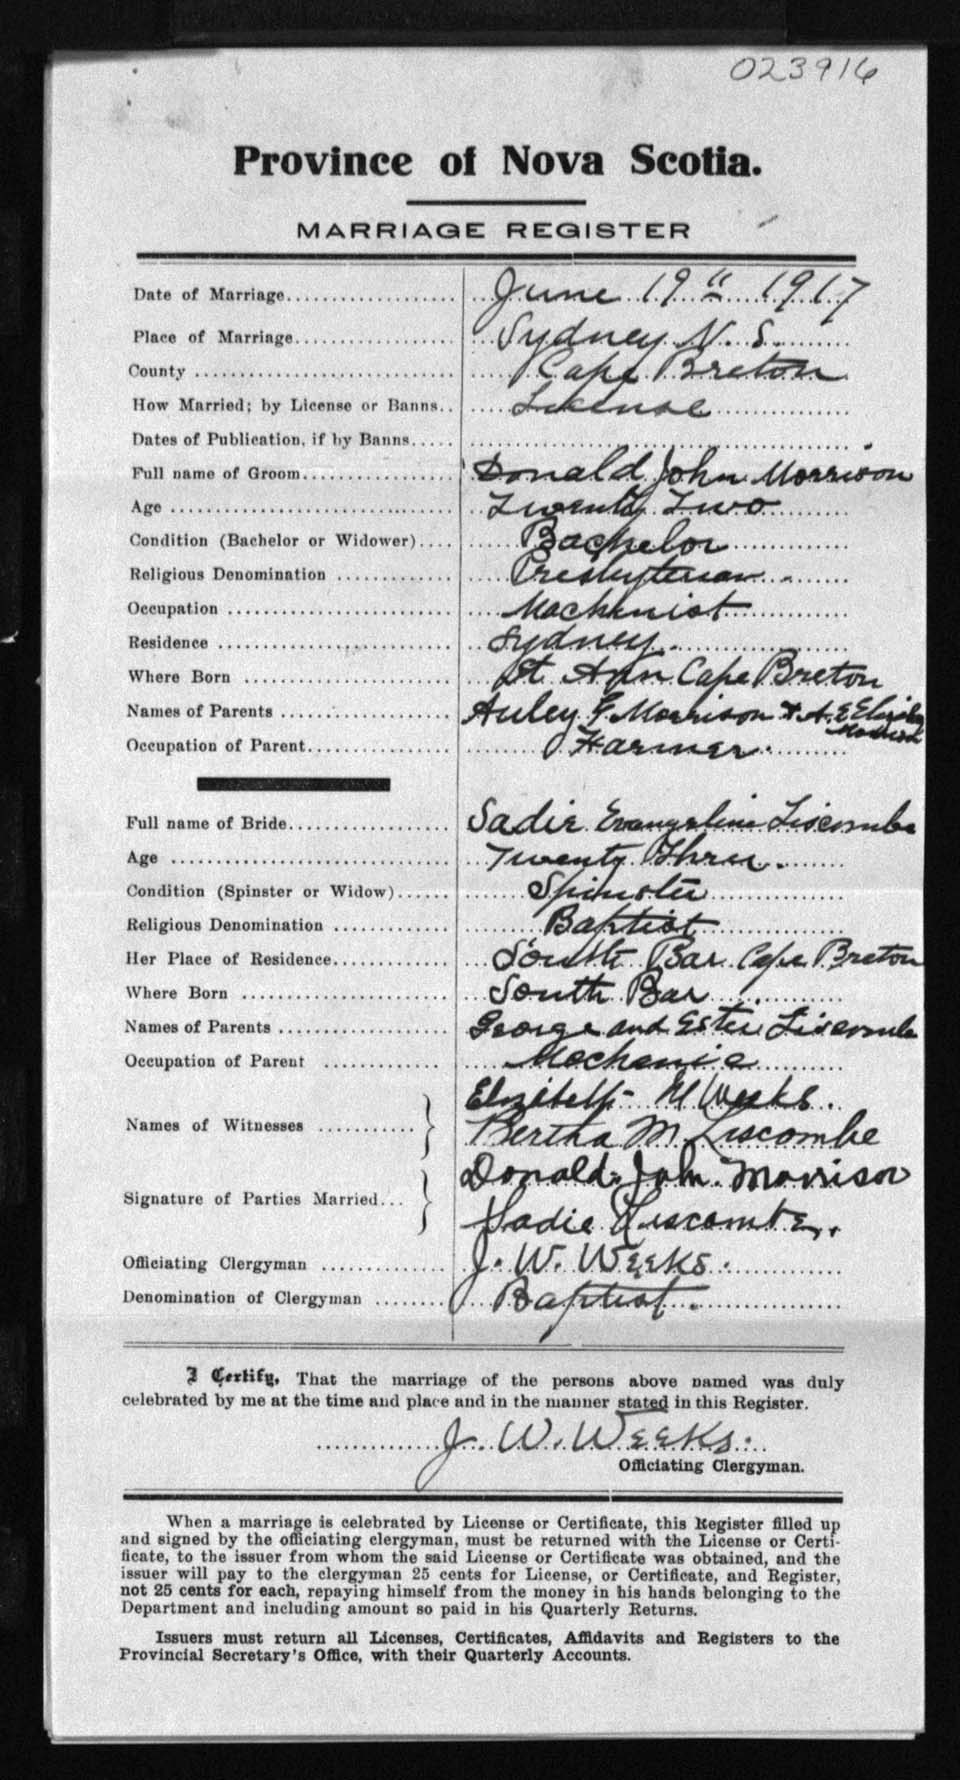 023916
Province of Nova Scotia.
MARRIAGE REGISTER
Date of Marriage.................... June 19th 1917
Place of Marriage................... Sydney N. S.
County ............................. Cape Breton
How Married; by License or Banns.. License
Dates of Publication, if by Banns.....
Full name of Groom................. Donald John Morrison
Age ................................ Twenty Two
Condition (Bachelor or Widower).... Bachelor
Religious Denomination ............. Presbyterian
Occupation ......................... Machinist
Residence .......................... Sydney.
Where Born ......................... St. Ann Cape Breton
Names of Parents ................... Auley G. Morrison &
Morrison
Occupation of Parent................ Farmer
Full name of Bride.................. Sadie Evangeline Liscombe
Age ................................ Twenty Three.
Condition (Spinster or Widow)...... Spinster
Religious Denomination ............. Baptist
Her Place of Residence.............. South Bar Cape Breton
Where Born ......................... South Bar
Names of Parents ................... George and Ester Liscombe
Occupation of Parent ............... Mechanic
Elizabeth M Weeks.
Names of Witnesses ...........
Bertha M Liscombe
Donald John Morrison
Signature of Parties Married...
Sadie Liscombe.
Officiating Clergyman .............. J. W. Weeks.
Denomination of Clergyman ........ Baptist.
I Certify, That the marriage of the persons above named was duly
celebrated by me at the time and place and in the manner stated in this Register.
J. W. Weeks.
Officiating Clergyman.
When a marriage is celebrated by License or Certificate, this Register filled up
and signed by the officiating clergyman, must be returned with the License or Certi-
ficate, to the issuer from whom the said License or Certificate was obtained, and the
issuer will pay to the clergyman 25 cents for License, or Certificate, and Register,
not 25 cents for each, repaying himself from the money in his hands belonging to the
Department and including amount so paid in his Quarterly Returns.
Issuers must return all Licenses, Certificates, Affidavits and Registers to the
Provincial Secretary's Office, with their Quarterly Accounts.